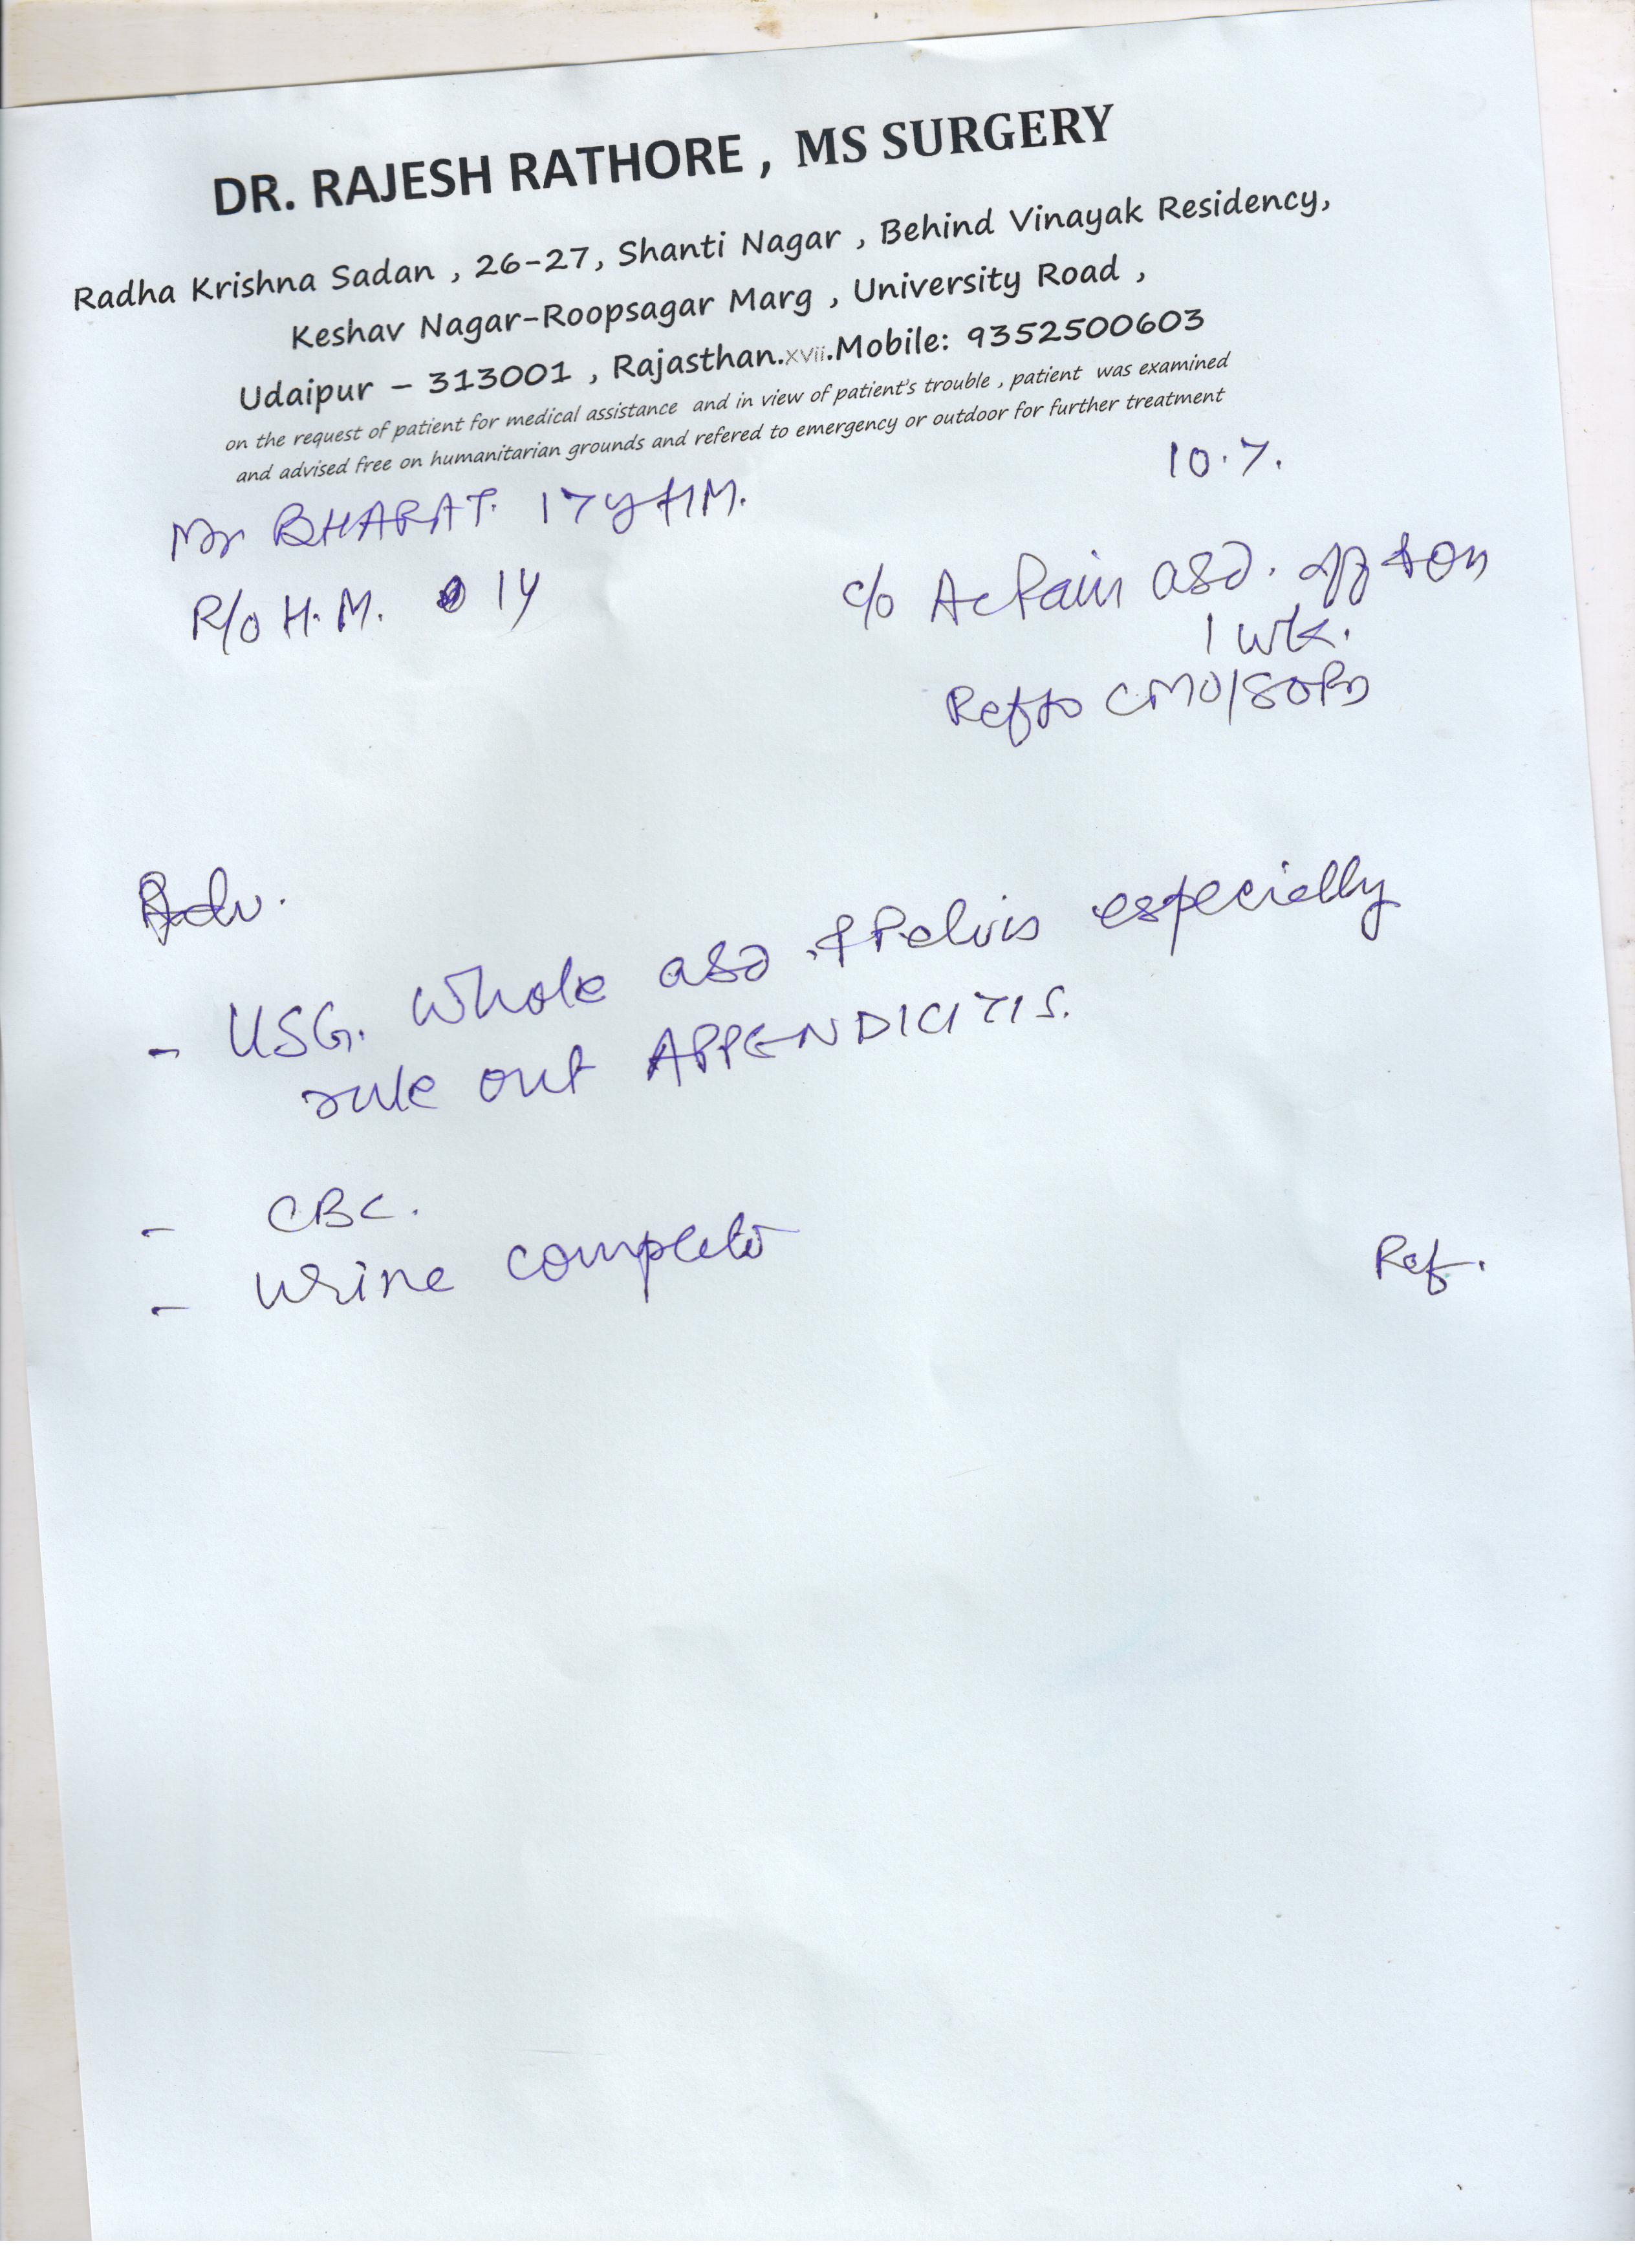 DR. RAJESH RATHORE , MS SURGERY
Radha Krishna Sadan , 26-27, Shanti Nagar , Behind Vinayak Residency,
Keshav Nagar-Roopsagar Marg , University Road ,
Udaipur – 313001 , Rajasthan.xvii.Mobile: 9352500603
on the request of patient for medical assistance and in view of patient's trouble , patient was examined
and advised free on humanitarian grounds and refered to emergency or outdoor for further treatment
10.7.
Mr BHARAT. 17y M.
R/o H.M. 14
c/o Ac Pain abd. off & on
1 wk.
Ref to CMO/SOPD
Adv.
- USG. Whole abd & Pelvis especially
rule out APPENDICITIS.
- CBC.
- Urine complete
Ref.